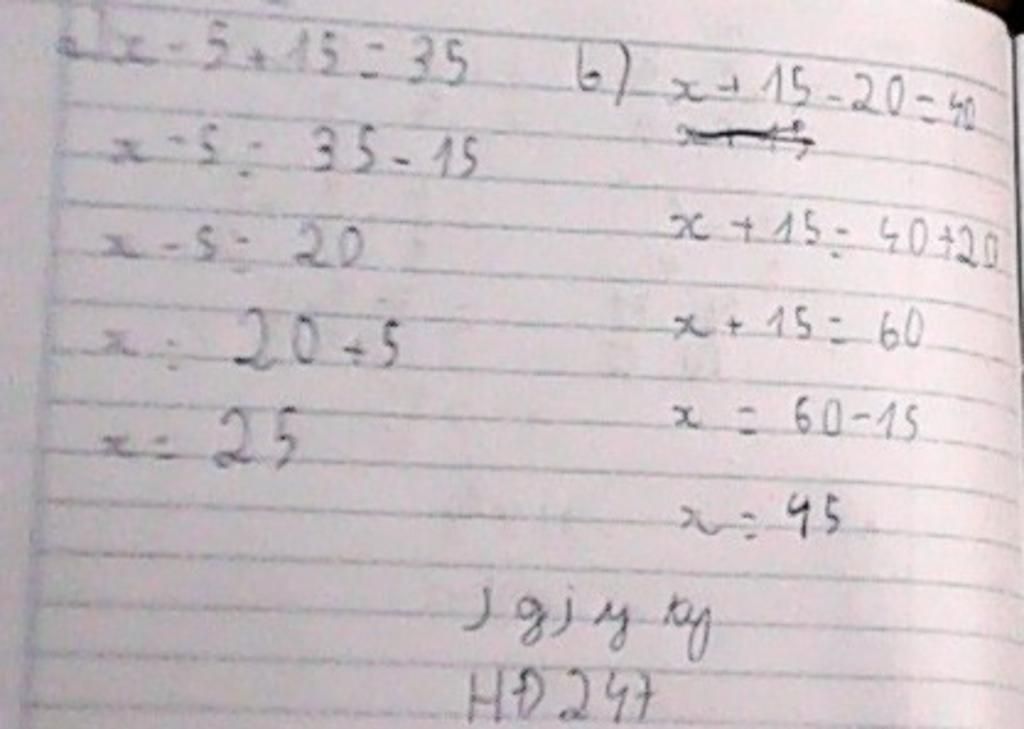 a) x - 5 + 15 = 35
x - 5 = 35 - 15
x - 5 = 20
x = 20 + 5
x = 25
b) x + 15 - 20 = 40
x + 15 = 40 + 20
x + 15 = 60
x = 60 - 15
x = 45
HĐ247